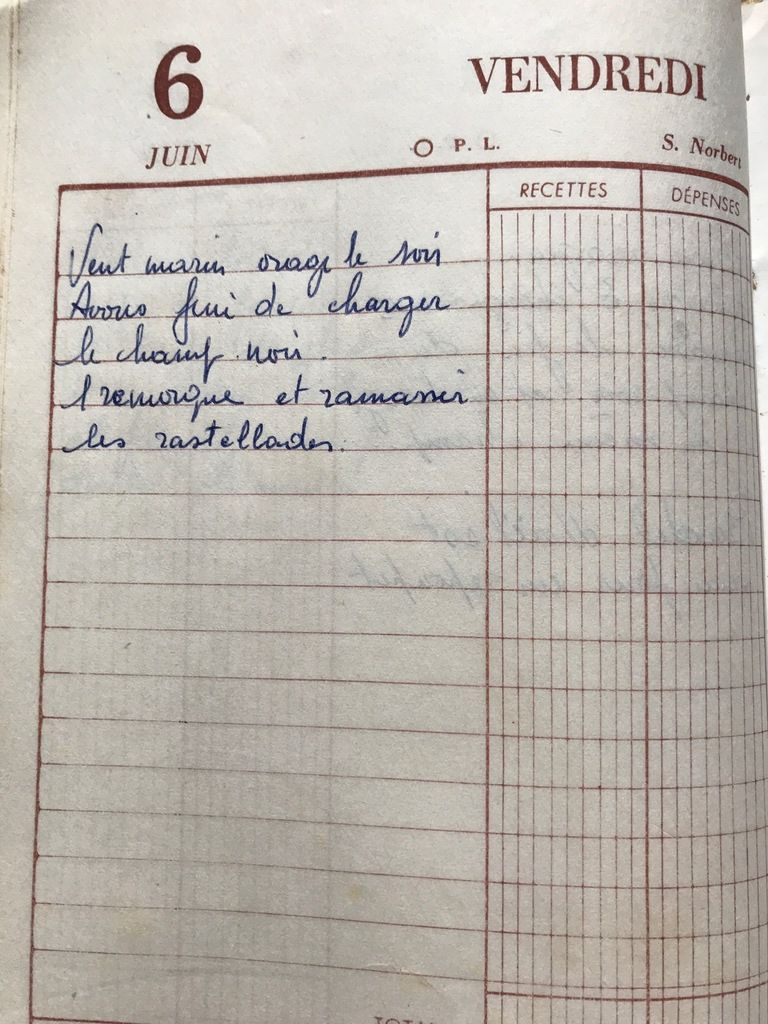 6 VENDREDI
JUIN P. L. S. Norbert
RECETTES DÉPENSES
Vent marin orage le soir
Avons fini de charger
le champ noir.
1 remorque et ramasser
les rastellades.